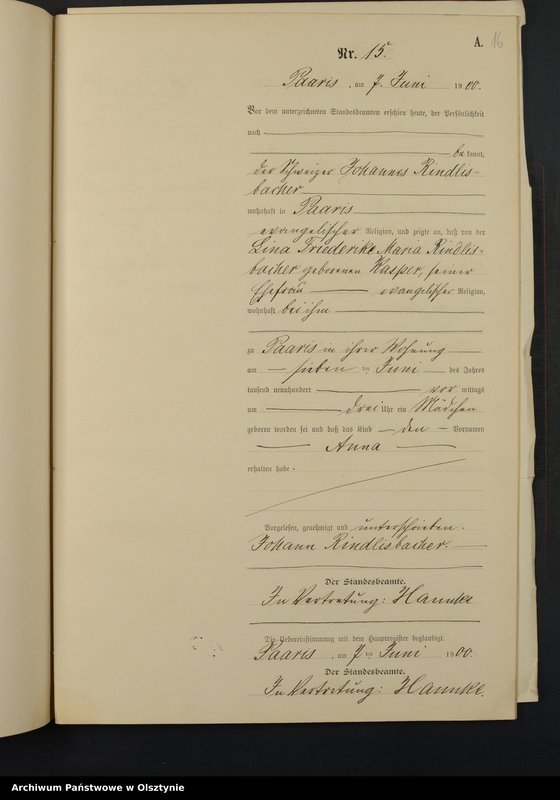 A. 16
Nr. 15.
Paaris, am 7. Juni 1900.
Vor dem unterzeichneten Standesbeamten erschien heute, der Persönlichkeit
nach
bekannt,
der Schweizer Johannes Rindlis-
bacher
wohnhaft in Paaris
evangelischer Religion, und zeigte an, daß von der
Lina Friederike Maria Rindlis-
bacher geborenen Kasper, seiner
Ehefrau evangelischer Religion,
wohnhaft bei ihm
zu Paaris in ihrer Wohnung
am sieben ten Juni des Jahres
tausend neunhundert vor mittags
um drei Uhr ein Mädchen
geboren worden sei und daß das Kind den Vornamen
Anna
erhalten habe.
Vorgelesen, genehmigt und unterschrieben.
Johann Rindlisbacher.
Der Standesbeamte.
In Vertretung: Hannke
Die Uebereinstimmung mit dem Hauptregister beglaubigt.
Paaris, am 7 ten Juni 1900.
Der Standesbeamte.
In Vertretung: Hannke.
Archiwum Państwowe w Olsztynie